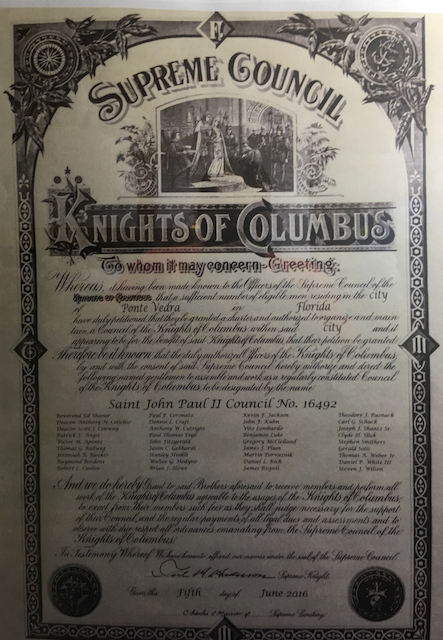 F
SUPREME COUNCIL
KNIGHTS OF COLUMBUS
To whom it may concern-Greeting:
Whereas, it having been made known to the Officers of the Supreme Council of the
Knights of Columbus, that a sufficient number of eligible men residing in the city
of Ponte Vedra in Florida
have duly petitioned that they be granted a charter and authorized to organize and main
tain a Council of the Knights of Columbus within said city and it
appearing to be for the benefit of said Knights of Columbus that their petition be granted
Therefore be it known that the duly authorized Officers of the Knights of Columbus,
by and with the consent of said Supreme Council hereby authorize and direct the
following named gentlemen to assemble and work as a regularly constituted Council
of the Knights of Columbus to be designated by the name
Saint John Paul II Council No. 16492
Reverend Ed Paul F. Kevin F. Jackson Theodore J.
Deacon Anthony Dennis L. Craft John F. Kuhn Carl G. Schuck
Deacon Scott J. Conway Anthony W. Vito Lombardo Joseph J. Sr.
Patrick F. Paul Thomas Benjamin Luke Clyde H.
Victor M. John Fitzgerald Gregory Stephen Smithers
Thomas G. Jason C. James J. Gerald
Jeremiah R. Stanley Martin Thomas A. Jr
Raymond Walter G. Daniel L. Daniel P. White III
Robert L. Brian J. James Steven J. Wilson
And we do hereby Grant to said Brothers aforesaid to receive members and perform all
work of the Knights of Columbus agreeable to the usages of the Knights of Columbus;
to exact from their members such fees as they shall judge necessary for the support
of their Council, and the regular payments of all legal dues and assessments and to
observe with due respect all ordinances emanating from the Supreme Council of the
Knights of Columbus.
In Testimony Whereof We have hereunto affixed our names under the seal of the Supreme Council
Supreme Knight
Given this Fifth day of June 2016
Supreme Secretary